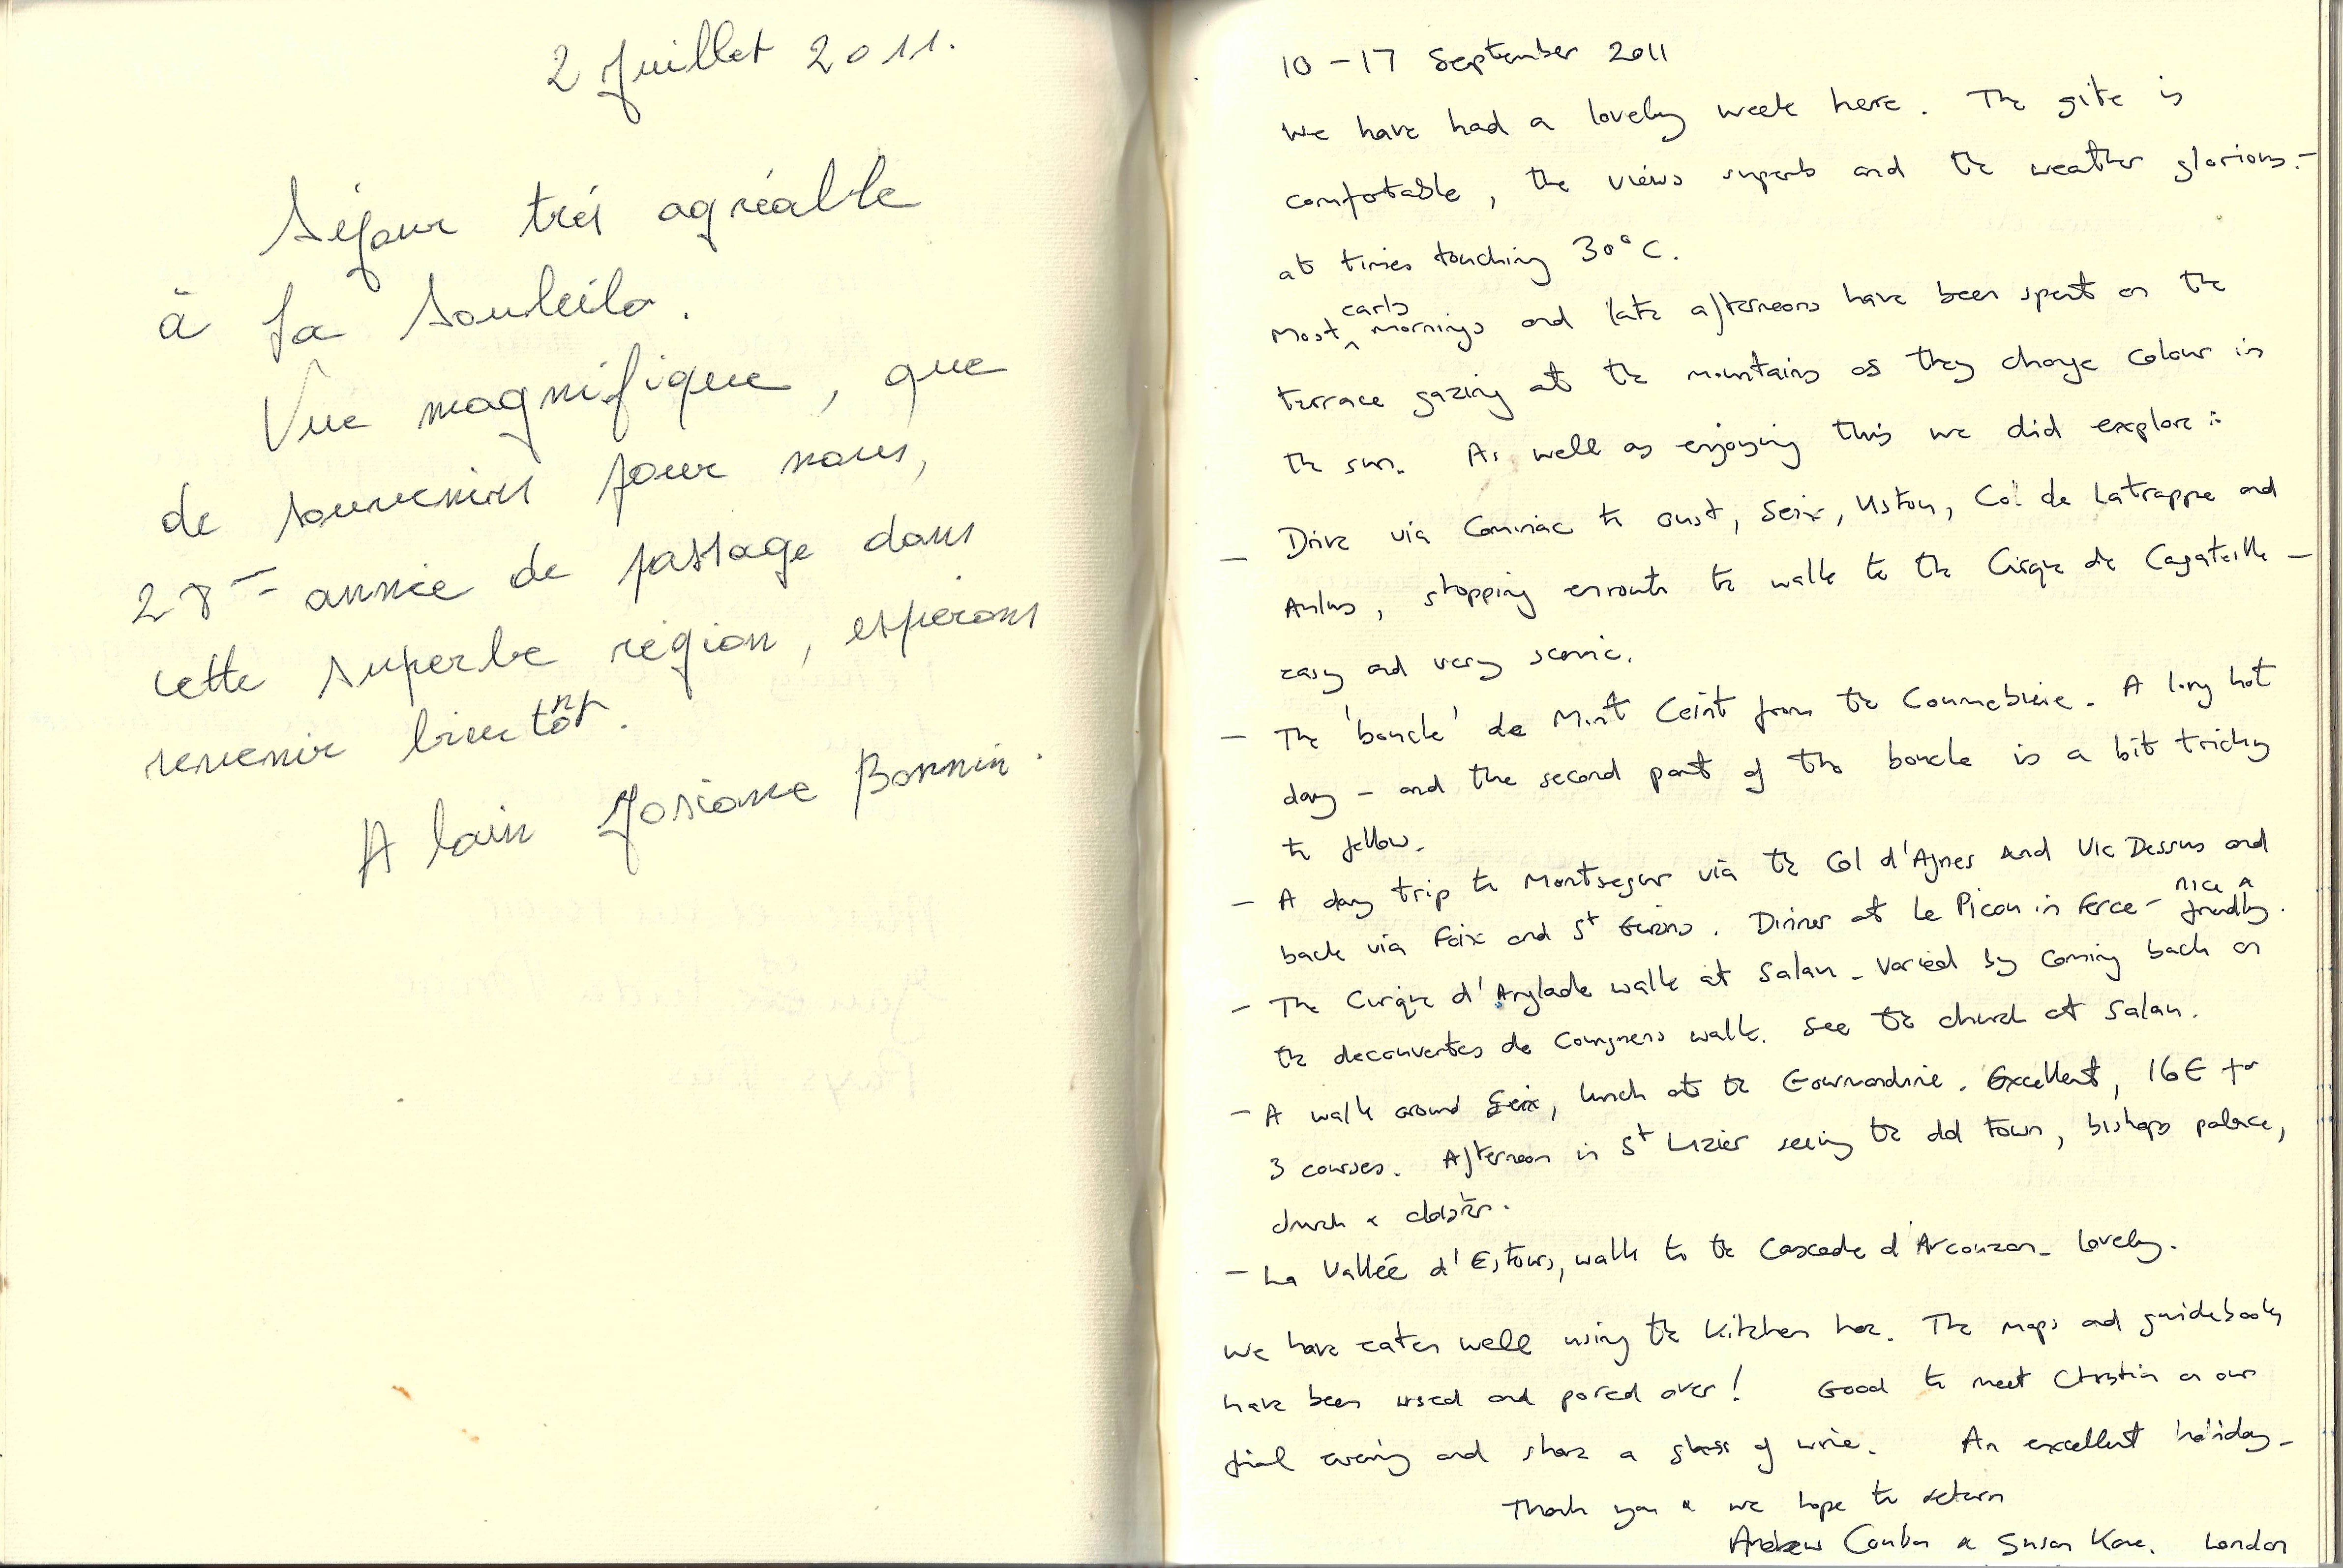 2 Juillet 2011.
Séjour très agréable
à la Souleilo.
Vue magnifique, que
de souvenirs pour nous,
28 année de passage dans
cette superbe région, espérons
revenir bientôt.
Alain Josiane Bonnin.
10 - 17 September 2011
We have had a lovely week here. The gite is
comfortable, the views superb and the weather glorious -
at times touching 30°C.
Most early mornings and late afternoons have been spent on the
terrace gazing at the mountains as they change colour in
the sun. As well as enjoying this we did explore :
- Drive via Cominac to Oust, Seix, Ustou, Col de Latrappe and
Aulus, stopping enroute to walk to the Cirque de Cagateille -
easy and very scenic.
- The 'boucle' de Mont Ceint from the Coumebiere. A long hot
day - and the second part of the boucle is a bit tricky
to follow.
- A day trip to Montsegur via the Col d'Agnes and Vic Dessus and
back via Foix and St Girons. Dinner at Le Picou in Erce - nice & friendly.
- The Cirque d'Anglade walk at Salau - varied by coming back on
the decouvertes de Cougnets walk. See the church at Salau.
- A walk around Seix, lunch at the Gourmandine. Excellent, 16€ for
3 courses. Afternoon in St Lizier seeing the old town, bishops palace,
church & cloister.
- La Vallée d'Estours, walk to the Cascade d'Arcouzan - lovely.
We have eaten well using the kitchen here. The maps and guidebooks
have been used and pored over! Good to meet Christian on our
final evening and share a glass of wine. An excellent holiday -
Thank you & we hope to return
Andrew & Susan Kane. London